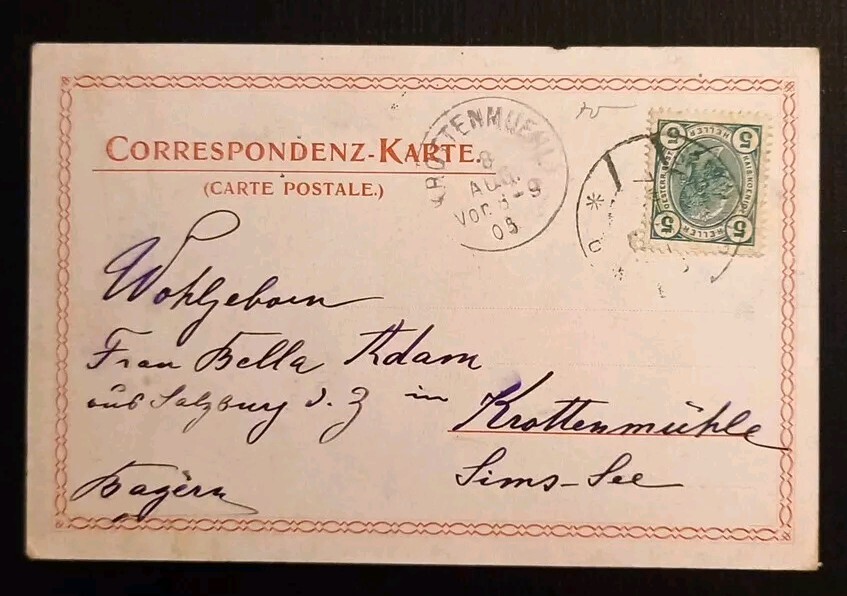 CORRESPONDENZ-KARTE.
(CARTE POSTALE.)
KROTTENMUEHL
8
AUG.
VOR. 8-9
05
5 5
HELLER
OESTERR. POST
KAIS. KÖNIGL.
HELLER
5 5
Wohlgeborn
Frau Bella Adam
aus Salzburg d. Z in Krottenmühle
Sims-See
Bayern